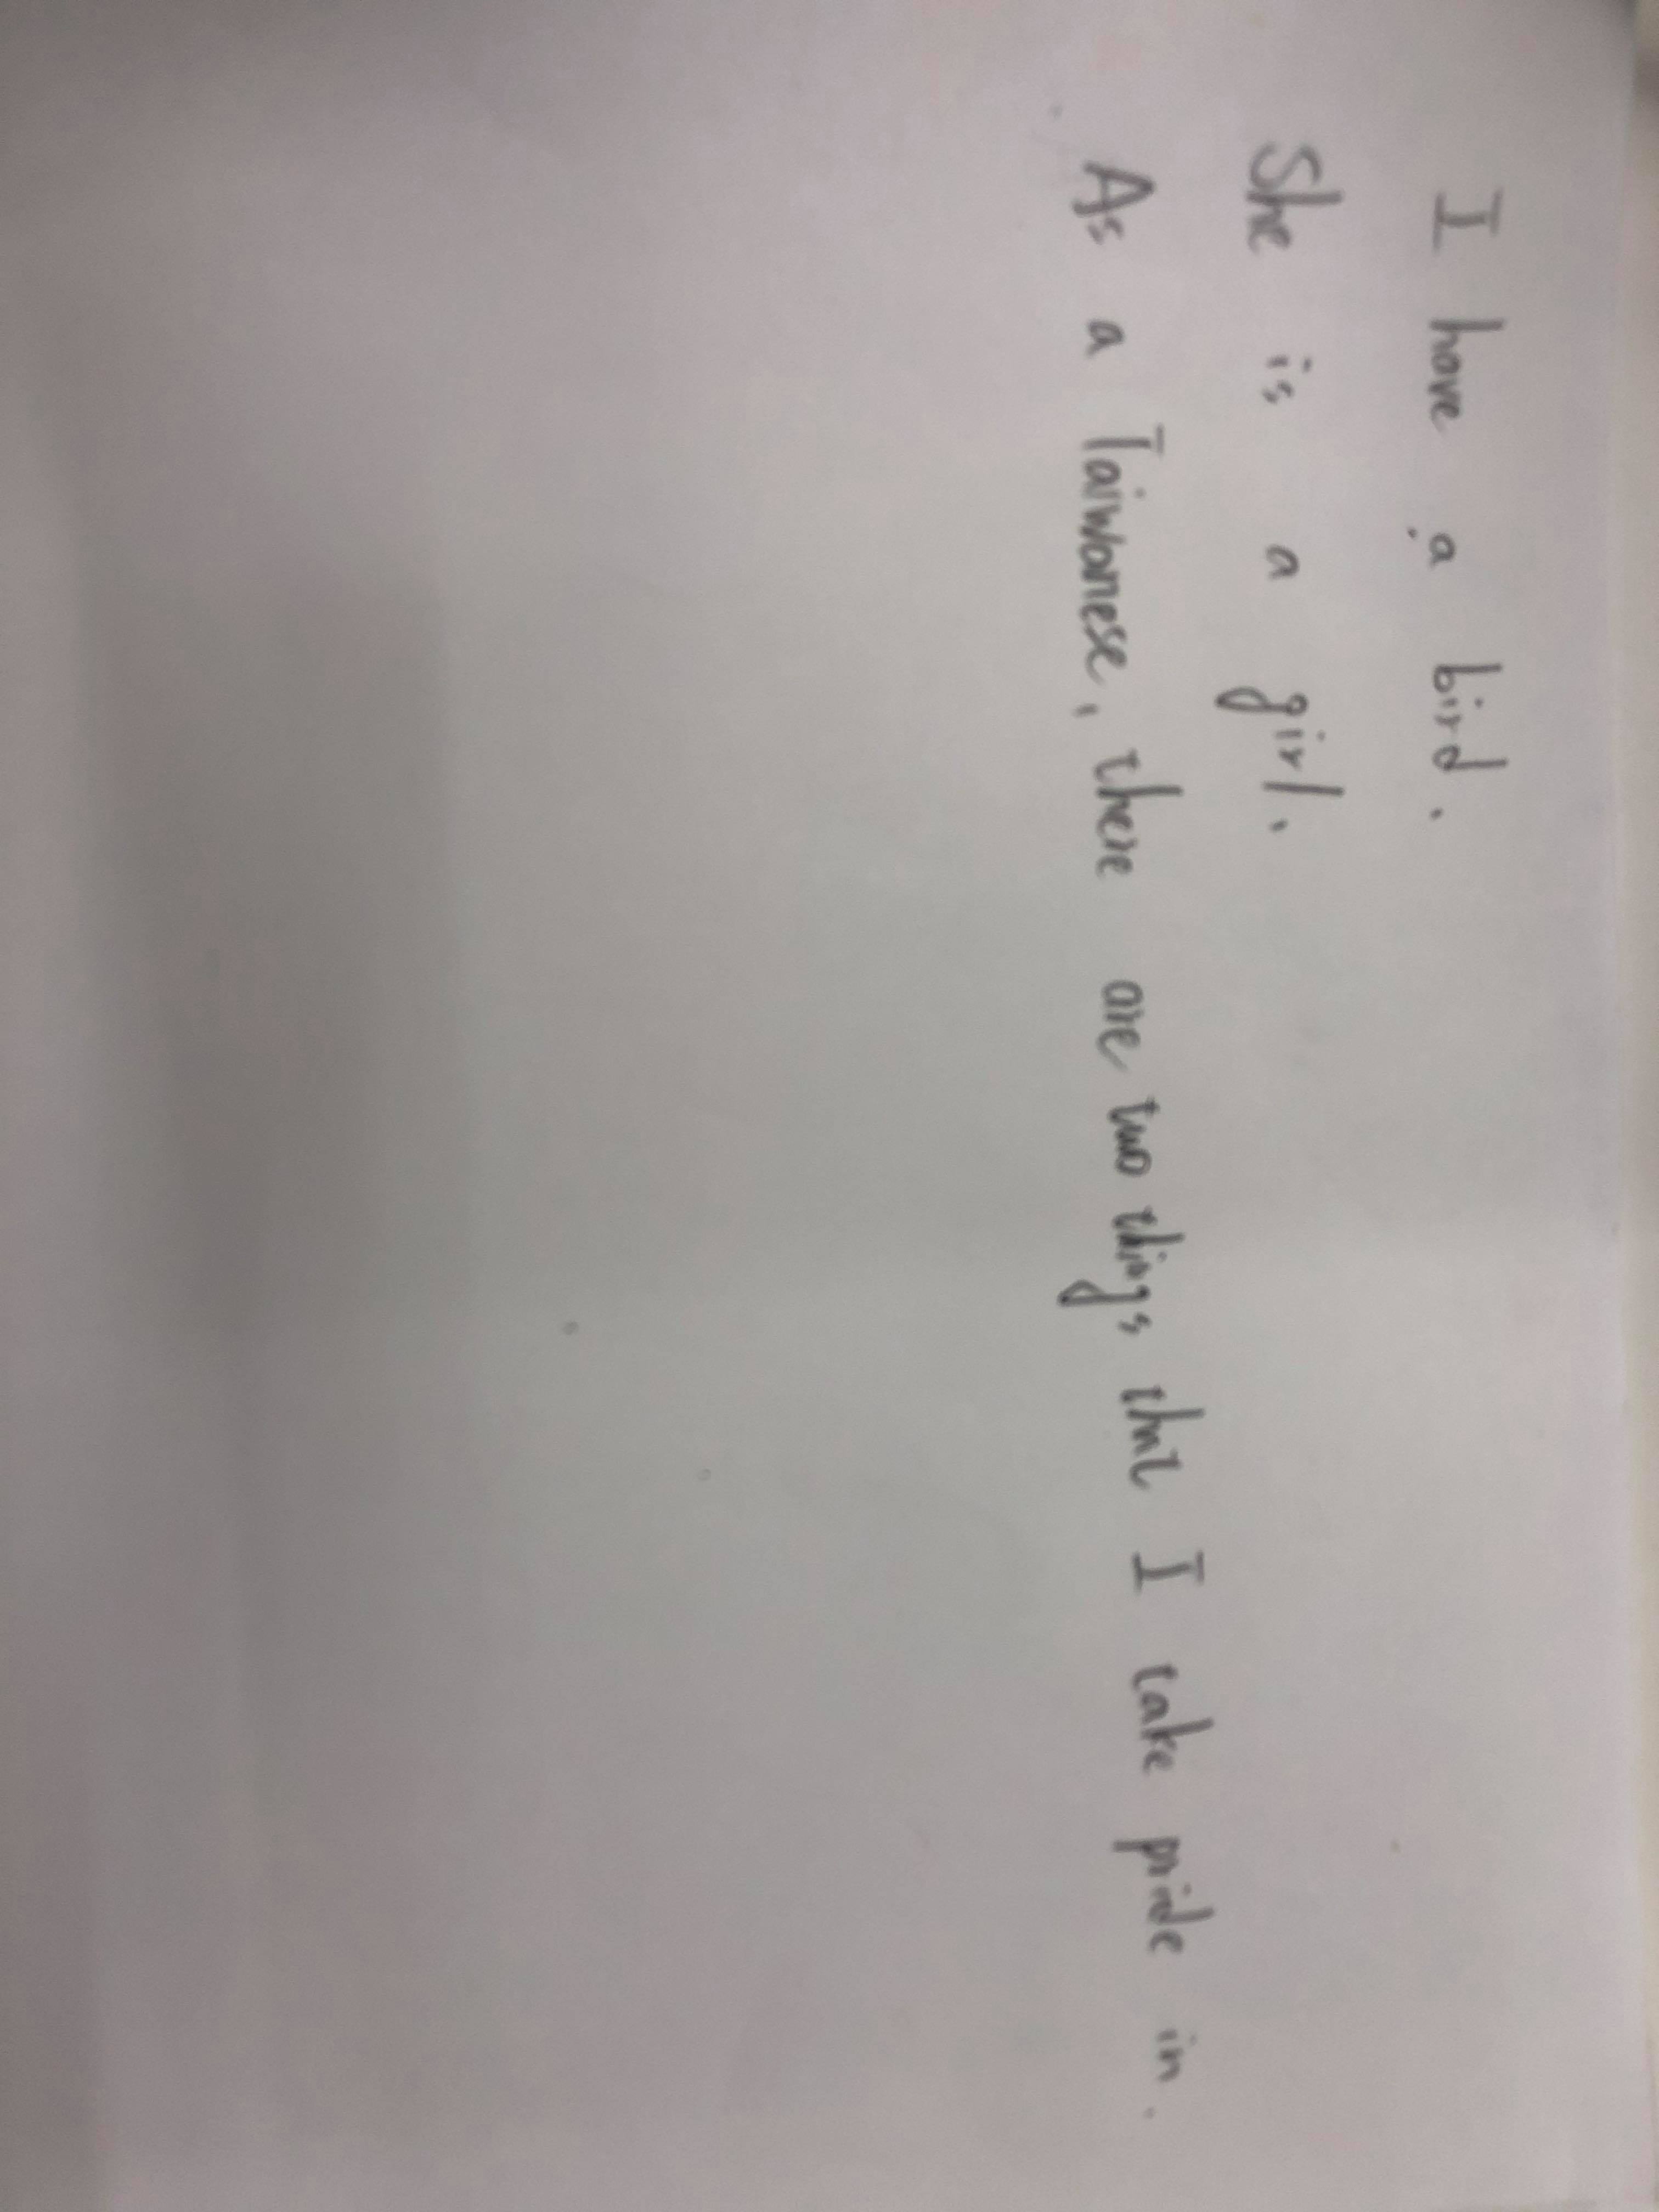 I have a bird.
She is a girl.
As a Taiwanese, there are two things that I take pride in.